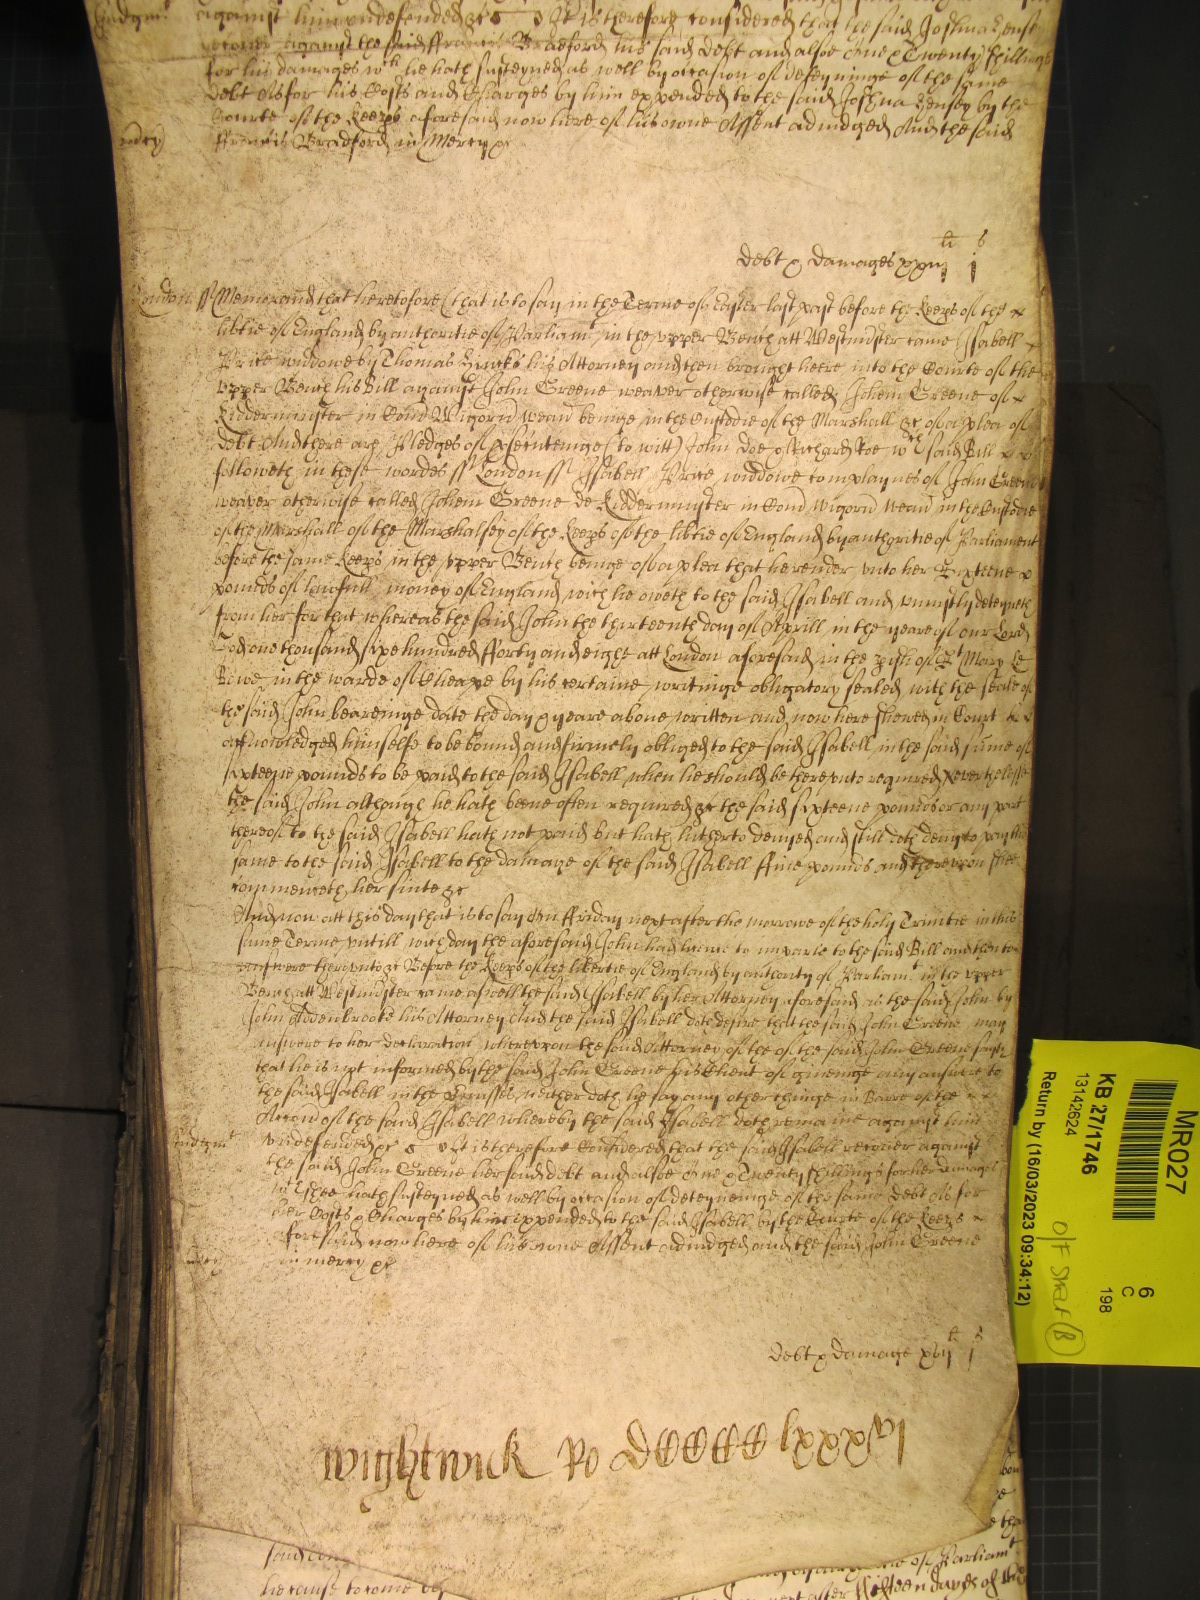 Judgmt against him undefended &c It is therefore considered that the said Joshua Sense
recover against the said ffrancis Bradford his said debt and alsoe One & Twenty shillings
for his damages wch he hath susteyned as well by occasion of deteyninge of the same
debt As for his Costs and Charges by him expended to the said Joshua Sensey by the
Courte of the Keeps aforesaid now here of his owne Assent adiudged And the said
mercy ffrancis Bradford in Mercy &c
li s
debt & damages j
London ss Memorand that heretofore (that is to say in the Terme of Easter last past before the Keeps of the
libtie of England by authoritie of Parliamt in the vpper Bench att Westmister came Isabell
Price widdowe by Thomas his Attorney and then brought heere into the Courte of the
vpper Bench his Bill against John Greene weaver otherwise called Johem Greene of
Kidderminster in Com Wigorn weav beinge in the Custodie of the Marshall &c of a plea of
debt And there are Pledges of psecuteinge (to witt) John Doe & Richard Roe wch said Bill
followeth in these wordes ss London ss Isabell Price widdowe complaynes of John Greene
weaver otherwise called Johem Greene de Kidderminster in Com Wigorn weav in the Custodie
of the Marshall of the Marshalsey of the Keeps of the libtie of England by authoritie of Parliament
before the same Keeps in the vpper Bench beinge of a plea that he render vnto her Sixteene
pounds of lawfull money of England wich he oweth to the said Isabell and vniustly deteyneth
from her for that whereas the said John the thirteenth day of Aprill in the yeare of our Lord
God one thousand sixe hundred fforty and eight att London aforesaid in the pish of St Mary le
Bowe in the warde of Cheape by his certaine writinge obligatory sealed with the seale of
the said John beareinge date the day & yeare aboue written and now here shewed in Court
acknowledged himselfe to be bound and firmely obliged to the said Isabell in the said sume of
sixteene pounds to be paid to the said Isabell when he should be therevnto required Neverthelesse
the said John although he hath beene often required &c the said sixteene pounds or any part
thereof to the said Isabell hath not paid but hath hitherto denyed and still doth deny to pay the
same to the said Isabell to the damage of the said Isabell ffiue pounds and therevpon shee
commenceth her suite &c
And now att this day that is to say On ffriday next after the morrowe of the holy Trinitie in this
same Terme vntill wich day the aforesaid John had licence to imparle to the said Bill and then to
answere therevnto &c Before the Keeps of the libertie of England by authority of Parliamt in the vpper
Bench att Westmister came aswell the said Isabell by her Attorney aforesaid as the said John by
John Addenbrooke his Attorney And the said Isabell doth desire that the said John Greene may
answere to her declaration Wherevpon the said Attorney of the of the said John Greene saith
that he is not informed by the said John Greene his Client of giueinge any answere to
the said Isabell in the Premisses neither doth he say any other thinge in Barre of the
Accon of the said Isabell whereby the said Isabell doth remaine against him
Judgmt vndefended &c It is therefore Considered that the said Isabell recouer against
the said John Greene her said debt and alsoe One & Twenty shillings for her damages
wch shee hath susteyned as well by occasion of deteyneinge of the same debt As for
her Costs & Charges by him expended to the said Isabell by the Courte of the Keeps
aforesaid now here of his owne Assent adiudged and the said John Greene
mercy in mercy &c
li s
debt & damage xvij j
Wightwick Ro DCCCC lxxxvj
said
he cause to come
of Parliamt
next after fifteen dayes of the
MR027
KB 27/1746
13142624
Return by (16/03/2023 09:34:12)
6
C
198
O/F SHELF (B)